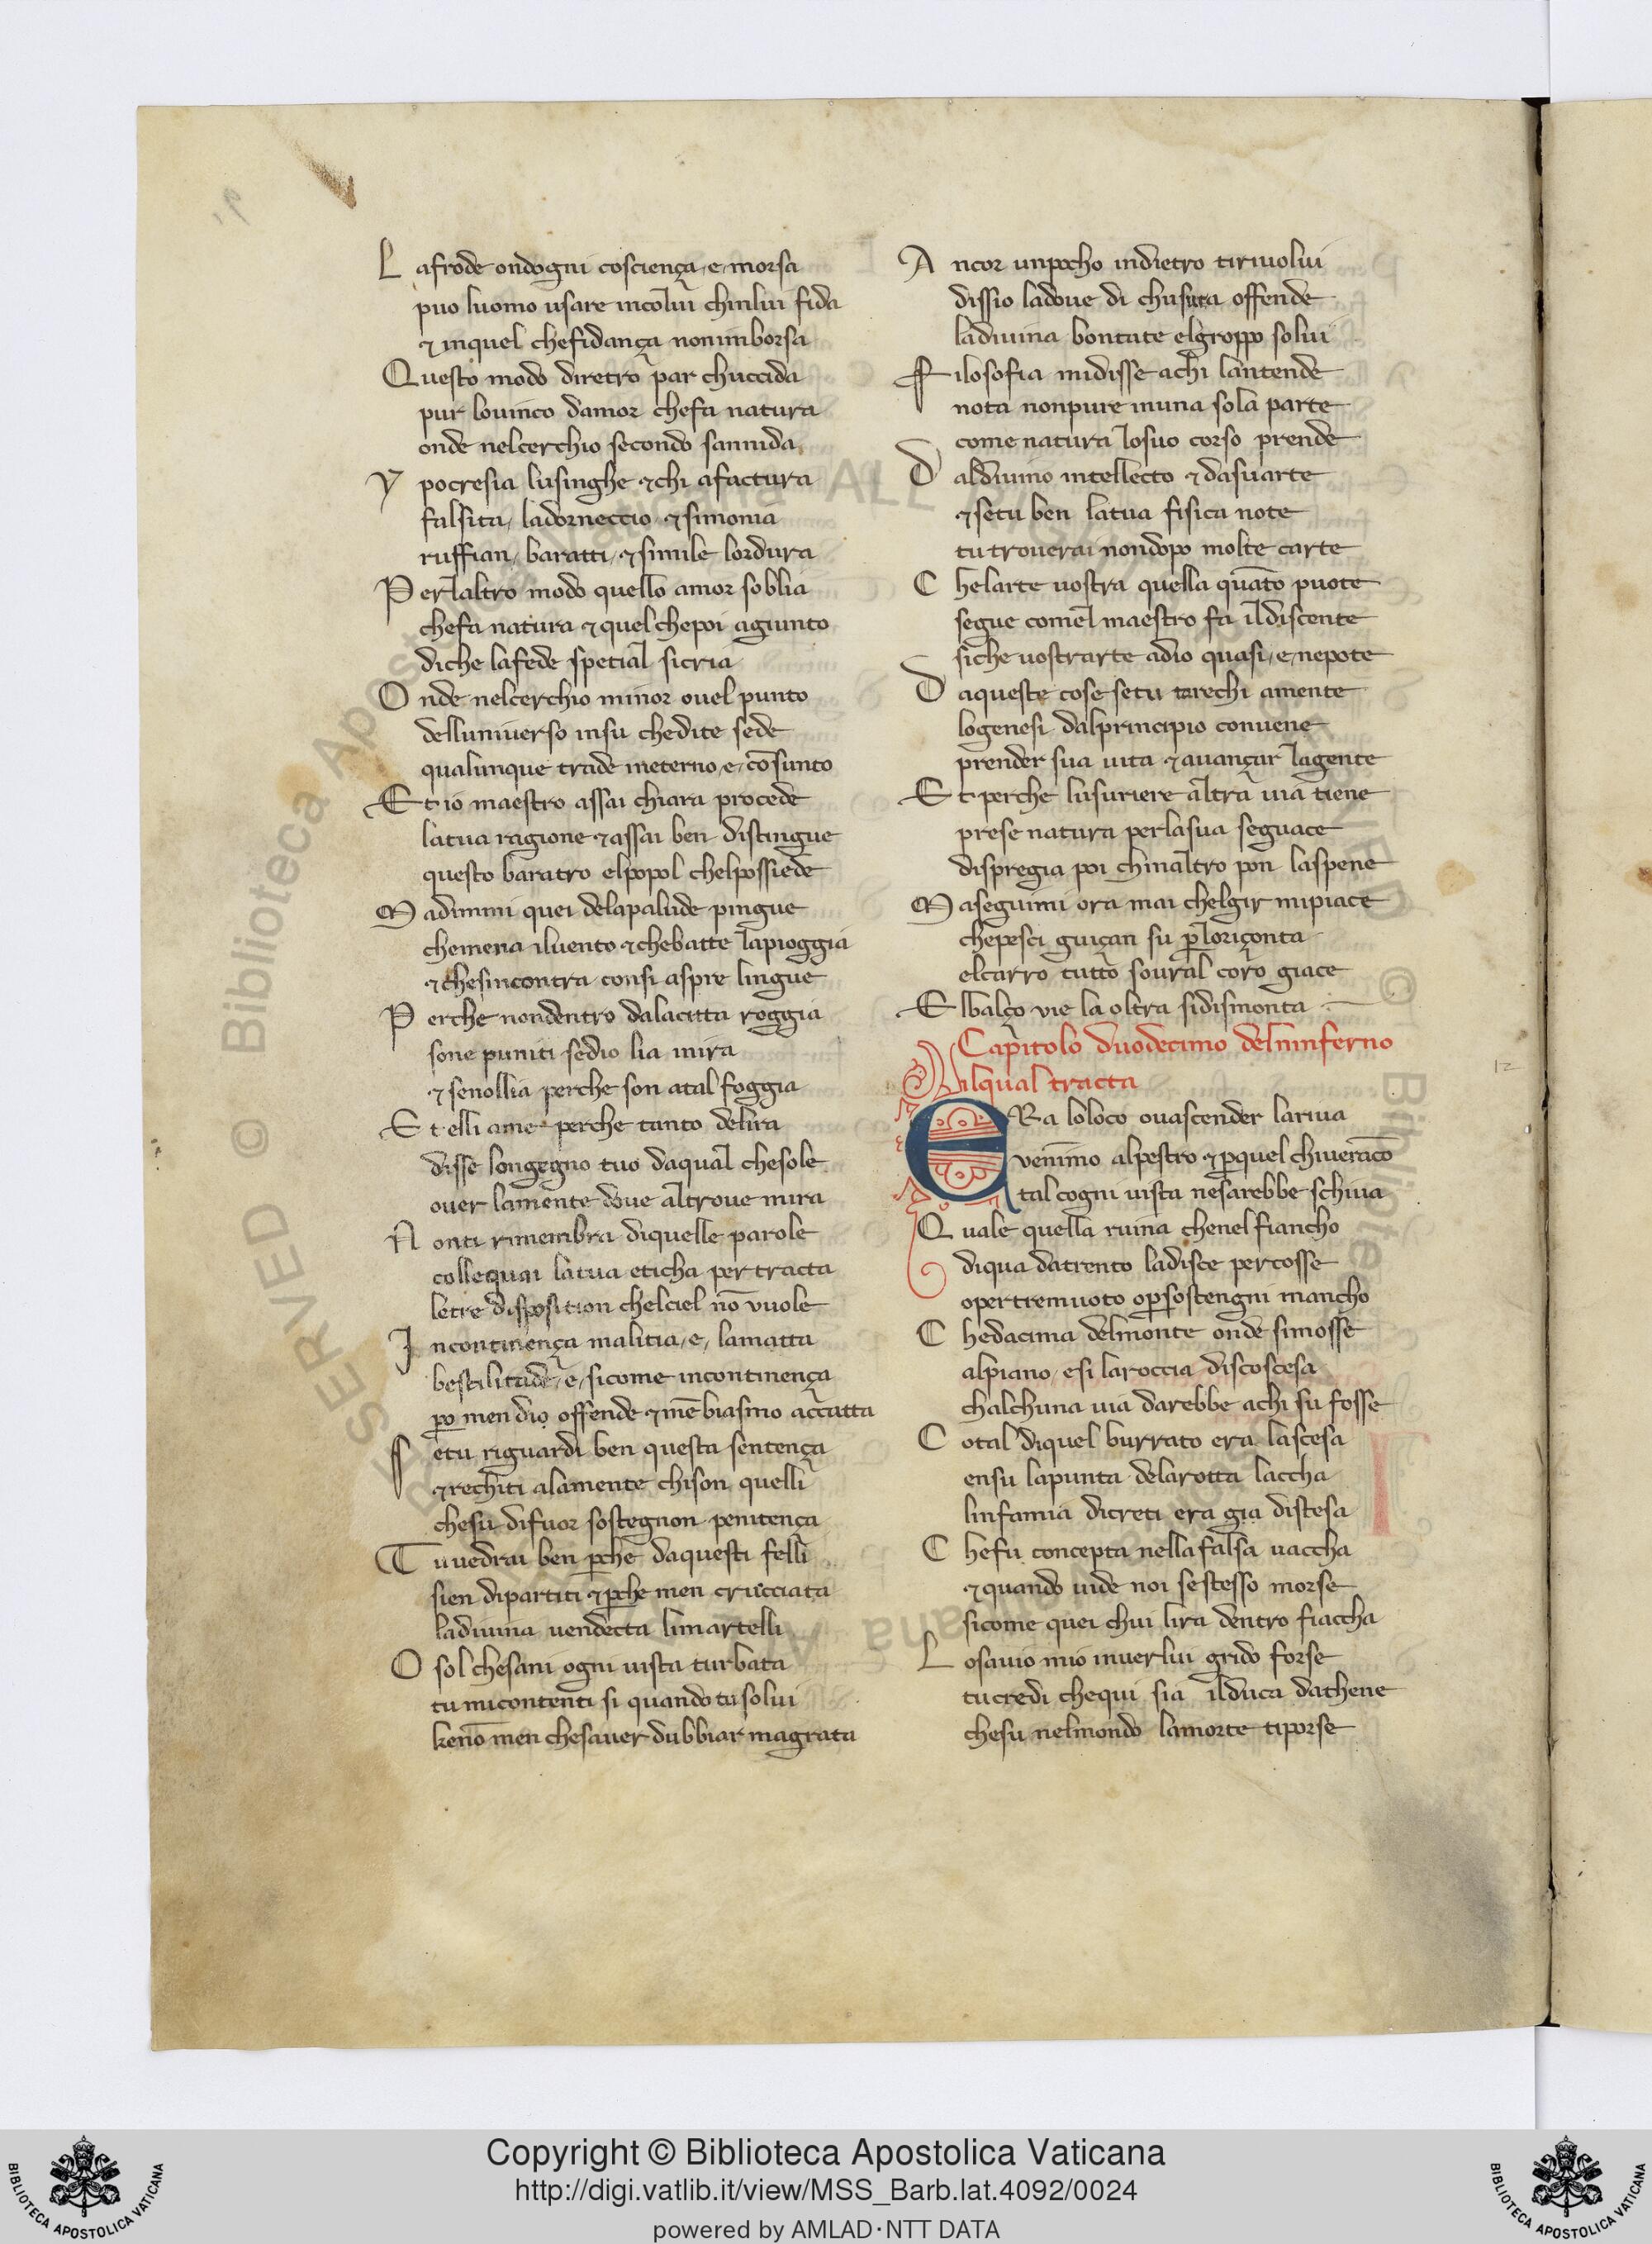 L afrode ondogni cosciença e morsa
puo luomo usare incolui chinlui fida
⁊ inquel chefidança nonimborsa
Questo modo diretro par chuccida
pur louinco damor chefa natura
onde nelcerchio secondo sannida
Y pocresia lusinghe ⁊ chi afactura
falsita ladorneccio ⁊ simonia
ruffian baratti ⁊ simile lordura
P erlaltro modo quello amor soblia
chefa natura ⁊ quel chepoi agiunto
diche lafede spetial sicria
O nde nelcerchio minor ouel punto
delluniuerso insu chedite sede
qualunque trade ineterno e co̅sunto
E t io maestro assai chiara procede
latua ragione ⁊ assai ben distingue
questo baratro elpopol chelpossiede
M adimmi quei delapalude pingue
chemena iluento ⁊ chebatte lapioggia
⁊ chesincontra consi aspre lingue
P erche nondentro dalacitta roggia
sone puniti sedio lia inira
⁊ senollia perche son atal foggia
E t elli ame perche tanto delira
disse longegno tuo daqual chesole
ouer lamente doue altroue mira
N onti rimembra diquelle parole
collequai latua eticha pertracta
letre disposition chelciel no̅ vuole
I ncontinença malitia e lamatta
bestilitade e sicome incontinença
ꝑo men dio offende ⁊ me̅ biasmo accatta
S etu riguardi ben questa sentença
⁊ rechiti alamente chison quelli
chesu difuor sostegnon penitença
T uuedrai ben ꝑche daquesti felli
sien dipartiti ⁊ ꝑche men crucciata
ladiuina uendecta limartelli
O sol chesani ogni uista turbata
tu micontenti si quando tu solui
keno̅ men chesauer dubbiar magrata
A ncor unpocho indietro tiriuolui
dissio ladoue di chusura offende
ladiuina bontate elgroppo solui
F ilosofia midisse achi lantende
nota nonpure inuna sola parte
come natura losuo corso prende
D aldiuino intellecto ⁊ dasuarte
⁊ setu ben latua fisica note
tu trouerai nondopo molte carte
C helarte uostra quella qua̅to puote
segue comel maestro fa ildiscente
siche uostrarte adio quasi e nepote
D aqueste cose setu tarechi amente
logenesi dalprincipio conuene
prender sua uita ⁊ auançar lagente
E t perche lusuriere altra uia tiene
prese natura perlasua seguace
dispregia poi chinaltro pon laspene
M aseguimi ora mai chelgir mipiace
chepesci guiçan su ꝑloriçonta
elcarro tutto soural coro giace
E lbalço vie la oltra sidismonta
Capitolo duodecimo delninferno
ilqual tracta
ERa loloco ouascender lariua
venimo alpestro ⁊ ꝑquel chiuera̅co
tal cogni uista nesarebbe schiua
Q uale quella ruina chenel fiancho
diqua datrento ladisce percosse
opertremuoto oꝑsostengni mancho
C hedacima delmonte onde simosse
alpiano esi laroccia discoscesa
chalchuna uia darebbe achi su fosse
C otal diquel burrato era lascesa
ensu lapunta delarotta laccha
linfamia dicreti era gia distesa
C hefu concepta nellafalsa uaccha
⁊ quando uide noi sestesso morse
sicome quei chui lira dentro fiaccha
L osauio mio inuerlui grido forse
tucredi chequi sia ilduca dathene
chesu nelmondo lamorte tiporse
12
Copyright © Biblioteca Apostolica Vaticana
http://digi.vatlib.it/view/MSS_Barb.lat.4092/0024
powered by AMLAD·NTT DATA
BIBLIOTECA APOSTOLICA VATICANA
BIBLIOTECA APOSTOLICA VATICANA